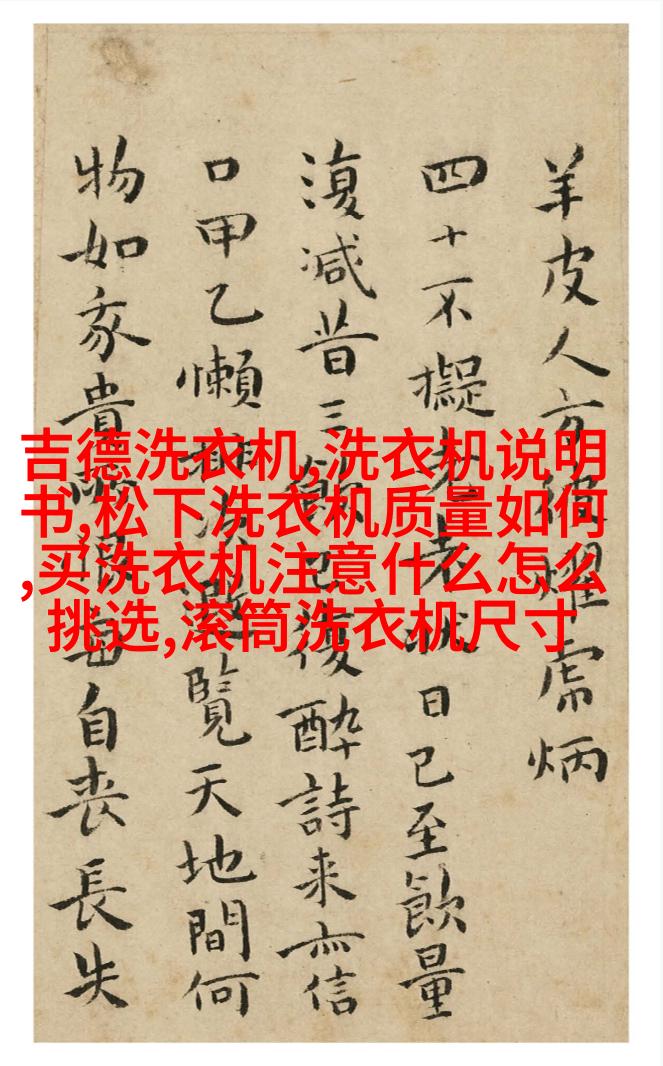 吉德洗衣机,洗衣机说明
书,松下洗衣机质量如何
,买洗衣机注意什么怎么
挑选,滚筒洗衣机尺寸
羊皮人方被燿虎炳
四十不擬老老狀日已至飲量
復減昔三飲已復醉詩来亦信
口甲乙懶次遨覽天地間何
物如我貴自喪長失